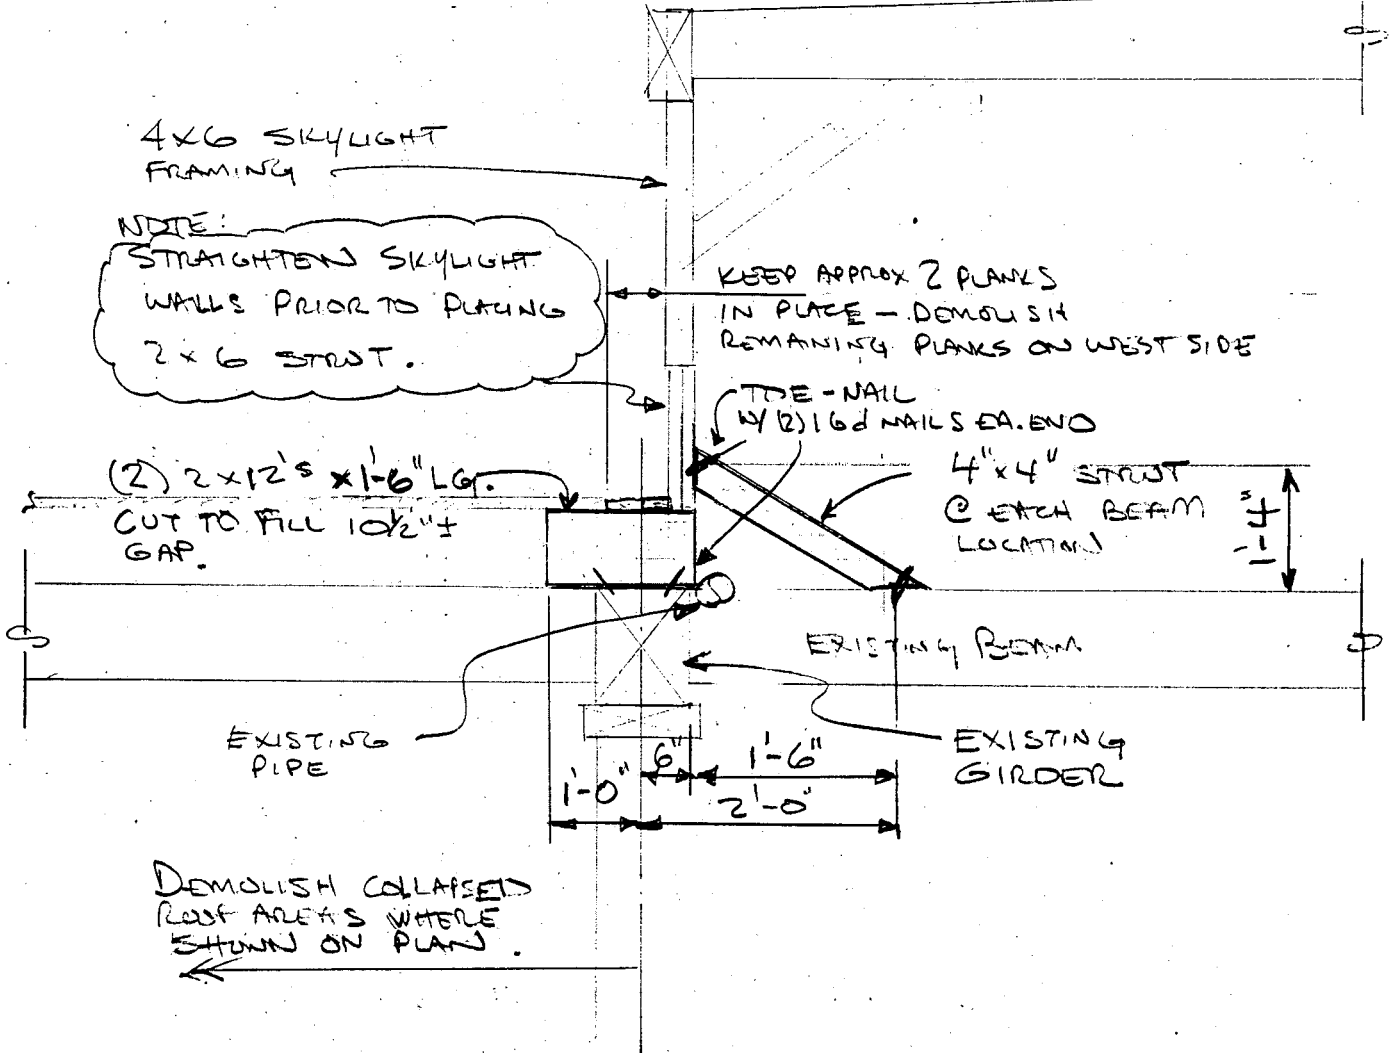 4x6 SKYLIGHT
FRAMING
NOTE:
STRAIGHTEN SKYLIGHT
WALLS PRIOR TO PLACING
2x6 STRUT.
KEEP APPROX 2 PLANKS
IN PLACE - DEMOLISH
REMAINING PLANKS ON WEST SIDE
TOE-NAIL
W/(2)16d NAILS EA. END
(2) 2x12's x1'-6" LG.
CUT TO FILL 10½"±
GAP.
4"x4" STRUT
@ EACH BEAM
LOCATION
1'±
EXISTING BEAM
EXISTING
PIPE
EXISTING
GIRDER
6"
1'-6"
1'-0"
2'-0"
DEMOLISH COLLAPSED
ROOF AREAS WHERE
SHOWN ON PLAN.